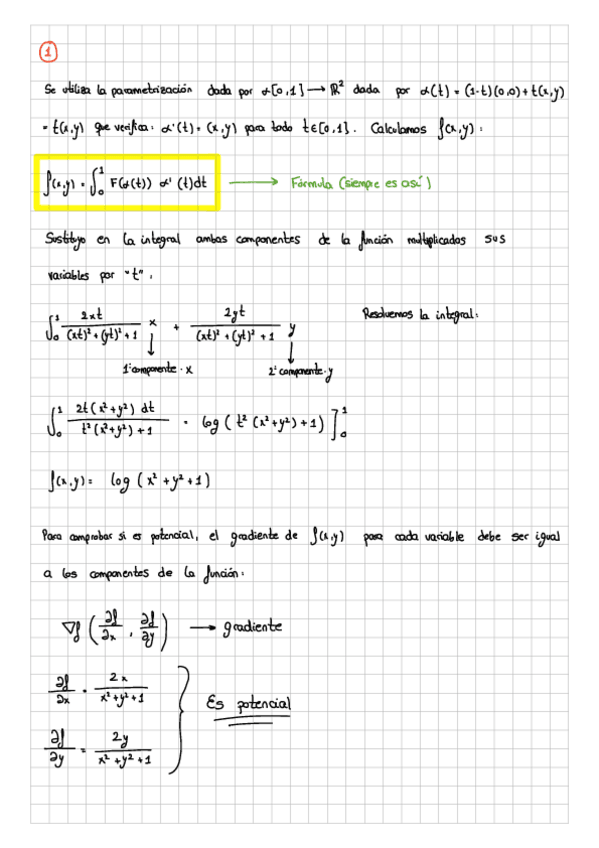 1
Se utiliza la parametrización dada por α[0,1] → ℝ² dada por α(t) = (1-t)(0,0) + t(x,y)
= t(x,y) que verifica: α'(t) = (x,y) para todo t∈[0,1]. Calculamos f(x,y):
f(x,y) = ∫₀¹ F(α(t)) α'(t)dt → Fórmula (siempre es así)
Sustituyo en la integral ambas componentes de la función multiplicados sus
variables por "t":
∫₀¹ 2xt / ((xt)² + (yt)² + 1) x + 2yt / ((xt)² + (yt)² + 1) y Resolvemos la integral:
1ª componente · x 2ª componente · y
∫₀¹ 2t(x² + y²) dt / (t²(x² + y²) + 1) = log (t² (x² + y²) + 1) ]₀¹
f(x,y) = log (x² + y² + 1)
Para comprobar si es potencial, el gradiente de f(x,y) para cada variable debe ser igual
a los componentes de la función:
∇f (∂f/∂x , ∂f/∂y) → gradiente
∂f/∂x = 2x / (x² + y² + 1)
Es potencial
∂f/∂y = 2y / (x² + y² + 1)